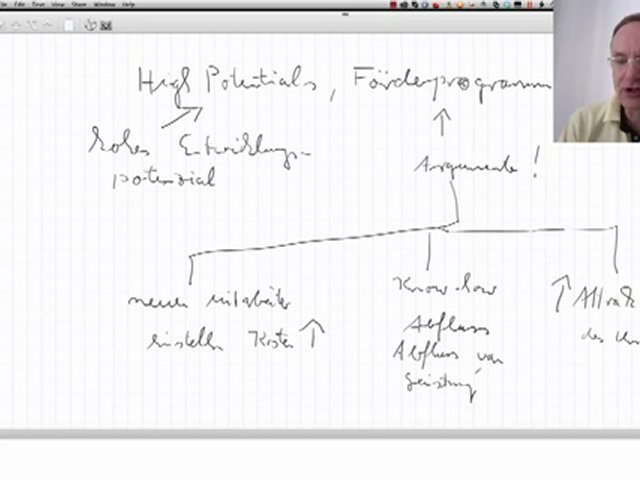 File Edit Tools View Share Window Help
High Potentials, Förderprogramm
hohes Entwicklungs-
potenzial
Argumente!
neuen Mitarbeiter
einstellen Kosten ↑
Know-how
Abfluss
Abfluss von
Leistung
↑ Attrak
des Un